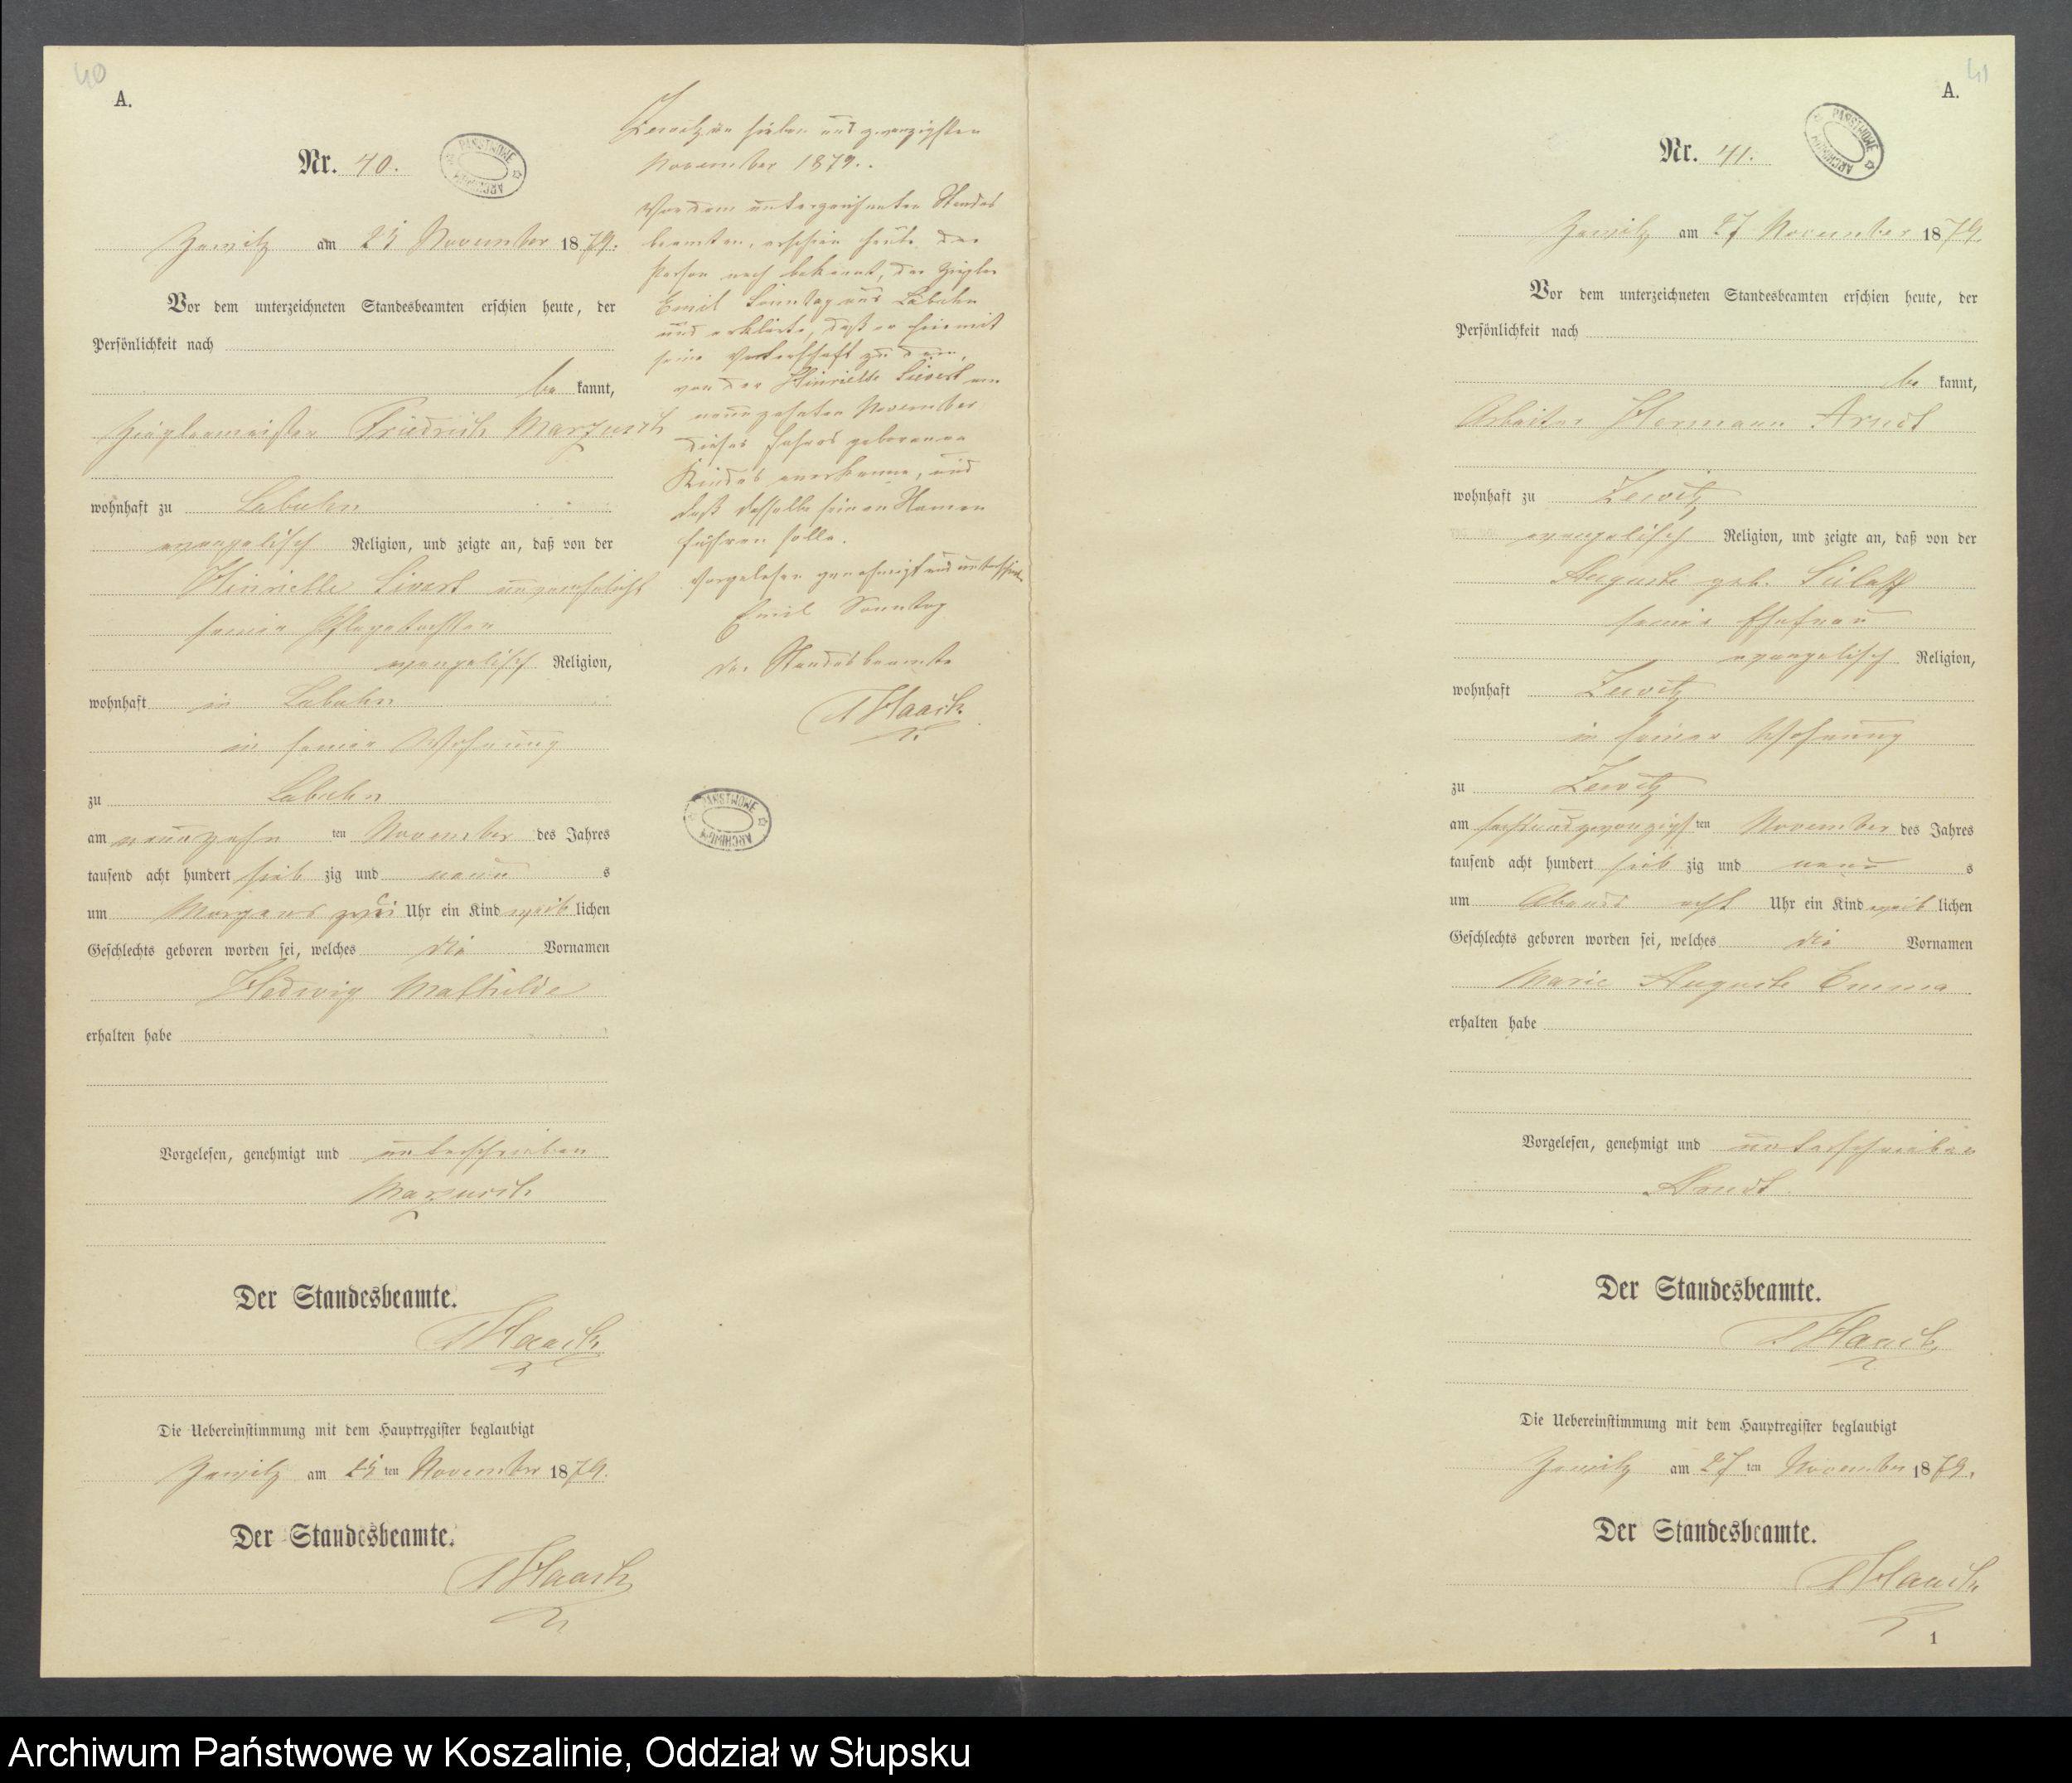 40
A.
Nr. 40.
PAŃSTWOWE ARCHIWUM
Zewitz am 25 November 1879.
Vor dem unterzeichneten Standesbeamten erschien heute, der
Persönlichkeit nach
be kannt,
Zieglermeister Friedrich
wohnhaft zu Labuhn
evangelisch Religion, und zeigte an, daß von der
Hinriette Sivert unverehelicht
seiner Pflegetochter
evangelisch Religion,
wohnhaft in Labuhn
in seiner Wohnung
zu Labuhn
am neunzehn ten November des Jahres
tausend acht hundert sieb zig und neun s
um Morgens Uhr ein Kind weib lichen
Geschlechts geboren worden sei, welches die Vornamen
Hedwig Mathilde
erhalten habe
Vorgelesen, genehmigt und unterschrieben
Der Standesbeamte.
Haack
Die Uebereinstimmung mit dem Hauptregister beglaubigt
Zewitz am 25 ten November 1879.
Der Standesbeamte.
Haack
Zewitz am sieben und zwanzigsten
November 1879.
Vor dem unterzeichneten Standes
beamten, erschien heute der
Person nach bekannt, der Ziegler
Emil Sonntag aus Labuhn
und erklärte, daß er hiermit
seine Vaterschaft zu dem,
von der Hinriette Sievert am
neunzehnten November
dieses Jahres geborenen
Kindes anerkenne, und
daß dasselbe seinen Namen
führen solle.
Vorgelesen genehmigt und unterschrieben
Emil Sonntag
Der Standesbeamte
Haack
PAŃSTWOWE ARCHIWUM
41
A.
Nr. 41.
PAŃSTWOWE ARCHIWUM
Zewitz am 27 November 1879.
Vor dem unterzeichneten Standesbeamten erschien heute, der
Persönlichkeit nach
be kannt,
Arbeiter Hermann Arndt
wohnhaft zu Zewitz
evangelisch Religion, und zeigte an, daß von der
Auguste geb. Sülaff
seiner Ehefrau
evangelisch Religion,
wohnhaft Zewitz
in seiner Wohnung
zu Zewitz
am sechsundzwanzigs ten November des Jahres
tausend acht hundert sieb zig und neun s
um Abends acht Uhr ein Kind weib lichen
Geschlechts geboren worden sei, welches die Vornamen
Marie Auguste Emma
erhalten habe
Vorgelesen, genehmigt und unterschrieben
Arndt.
Der Standesbeamte.
Haack
Die Uebereinstimmung mit dem Hauptregister beglaubigt
Zewitz am 27 ten November 1879.
Der Standesbeamte.
Haack
1
Archiwum Państwowe w Koszalinie, Oddział w Słupsku